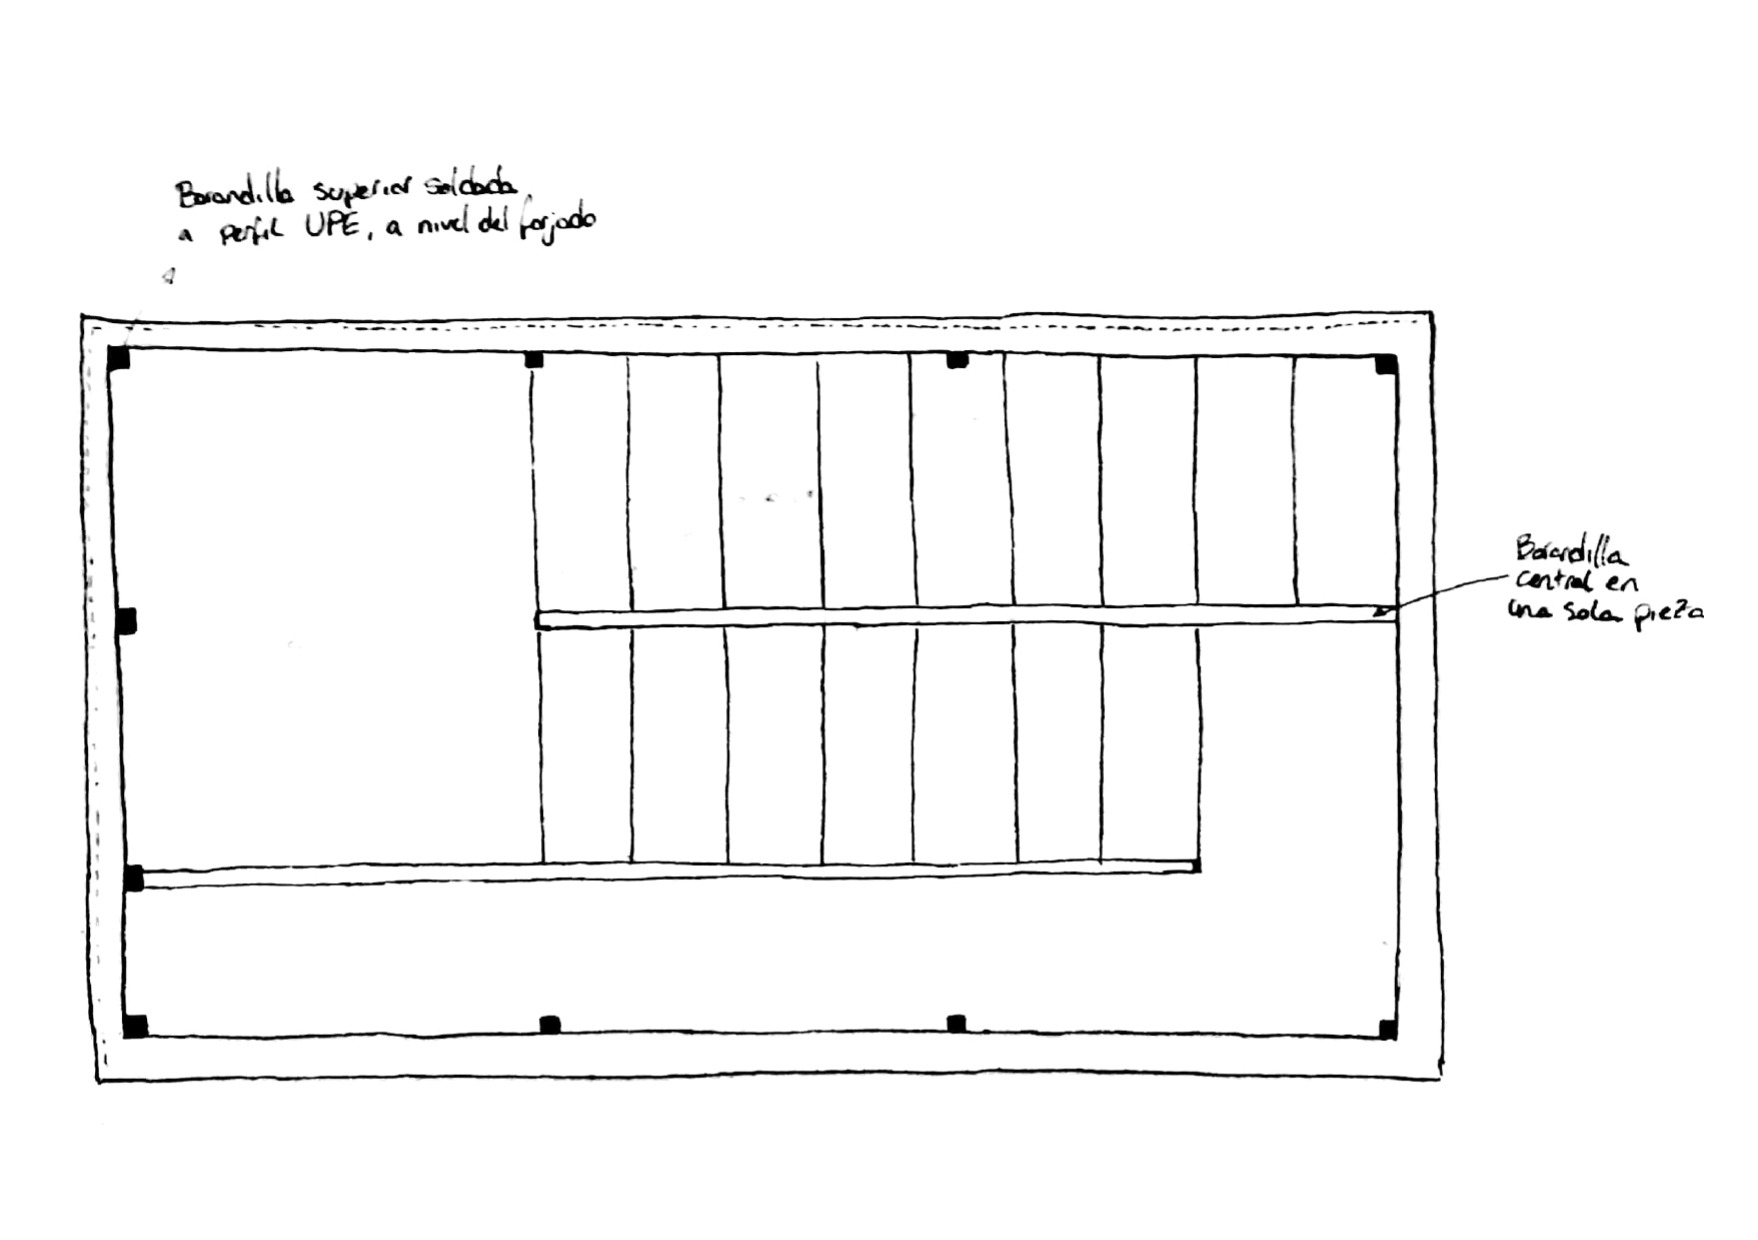 Barandilla superior soldada
a perfil UPE, a nivel del forjado
Barandilla
central en
una sola pieza